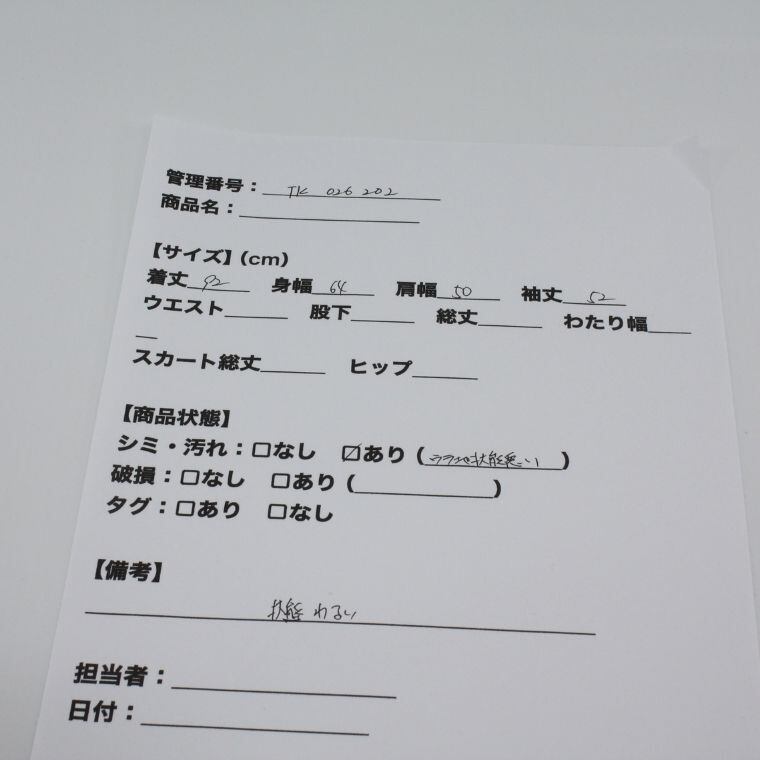 管理番号： TK 026 202
商品名：
【サイズ】(cm)
着丈 92 身幅 64 肩幅 50 袖丈 52
ウエスト 股下 総丈 わたり幅
スカート総丈 ヒップ
【商品状態】
シミ・汚れ：□なし ☑あり ( ウラ地状態悪い )
破損：□なし □あり ( )
タグ：□あり □なし
【備考】
状態わるい
担当者：
日付：